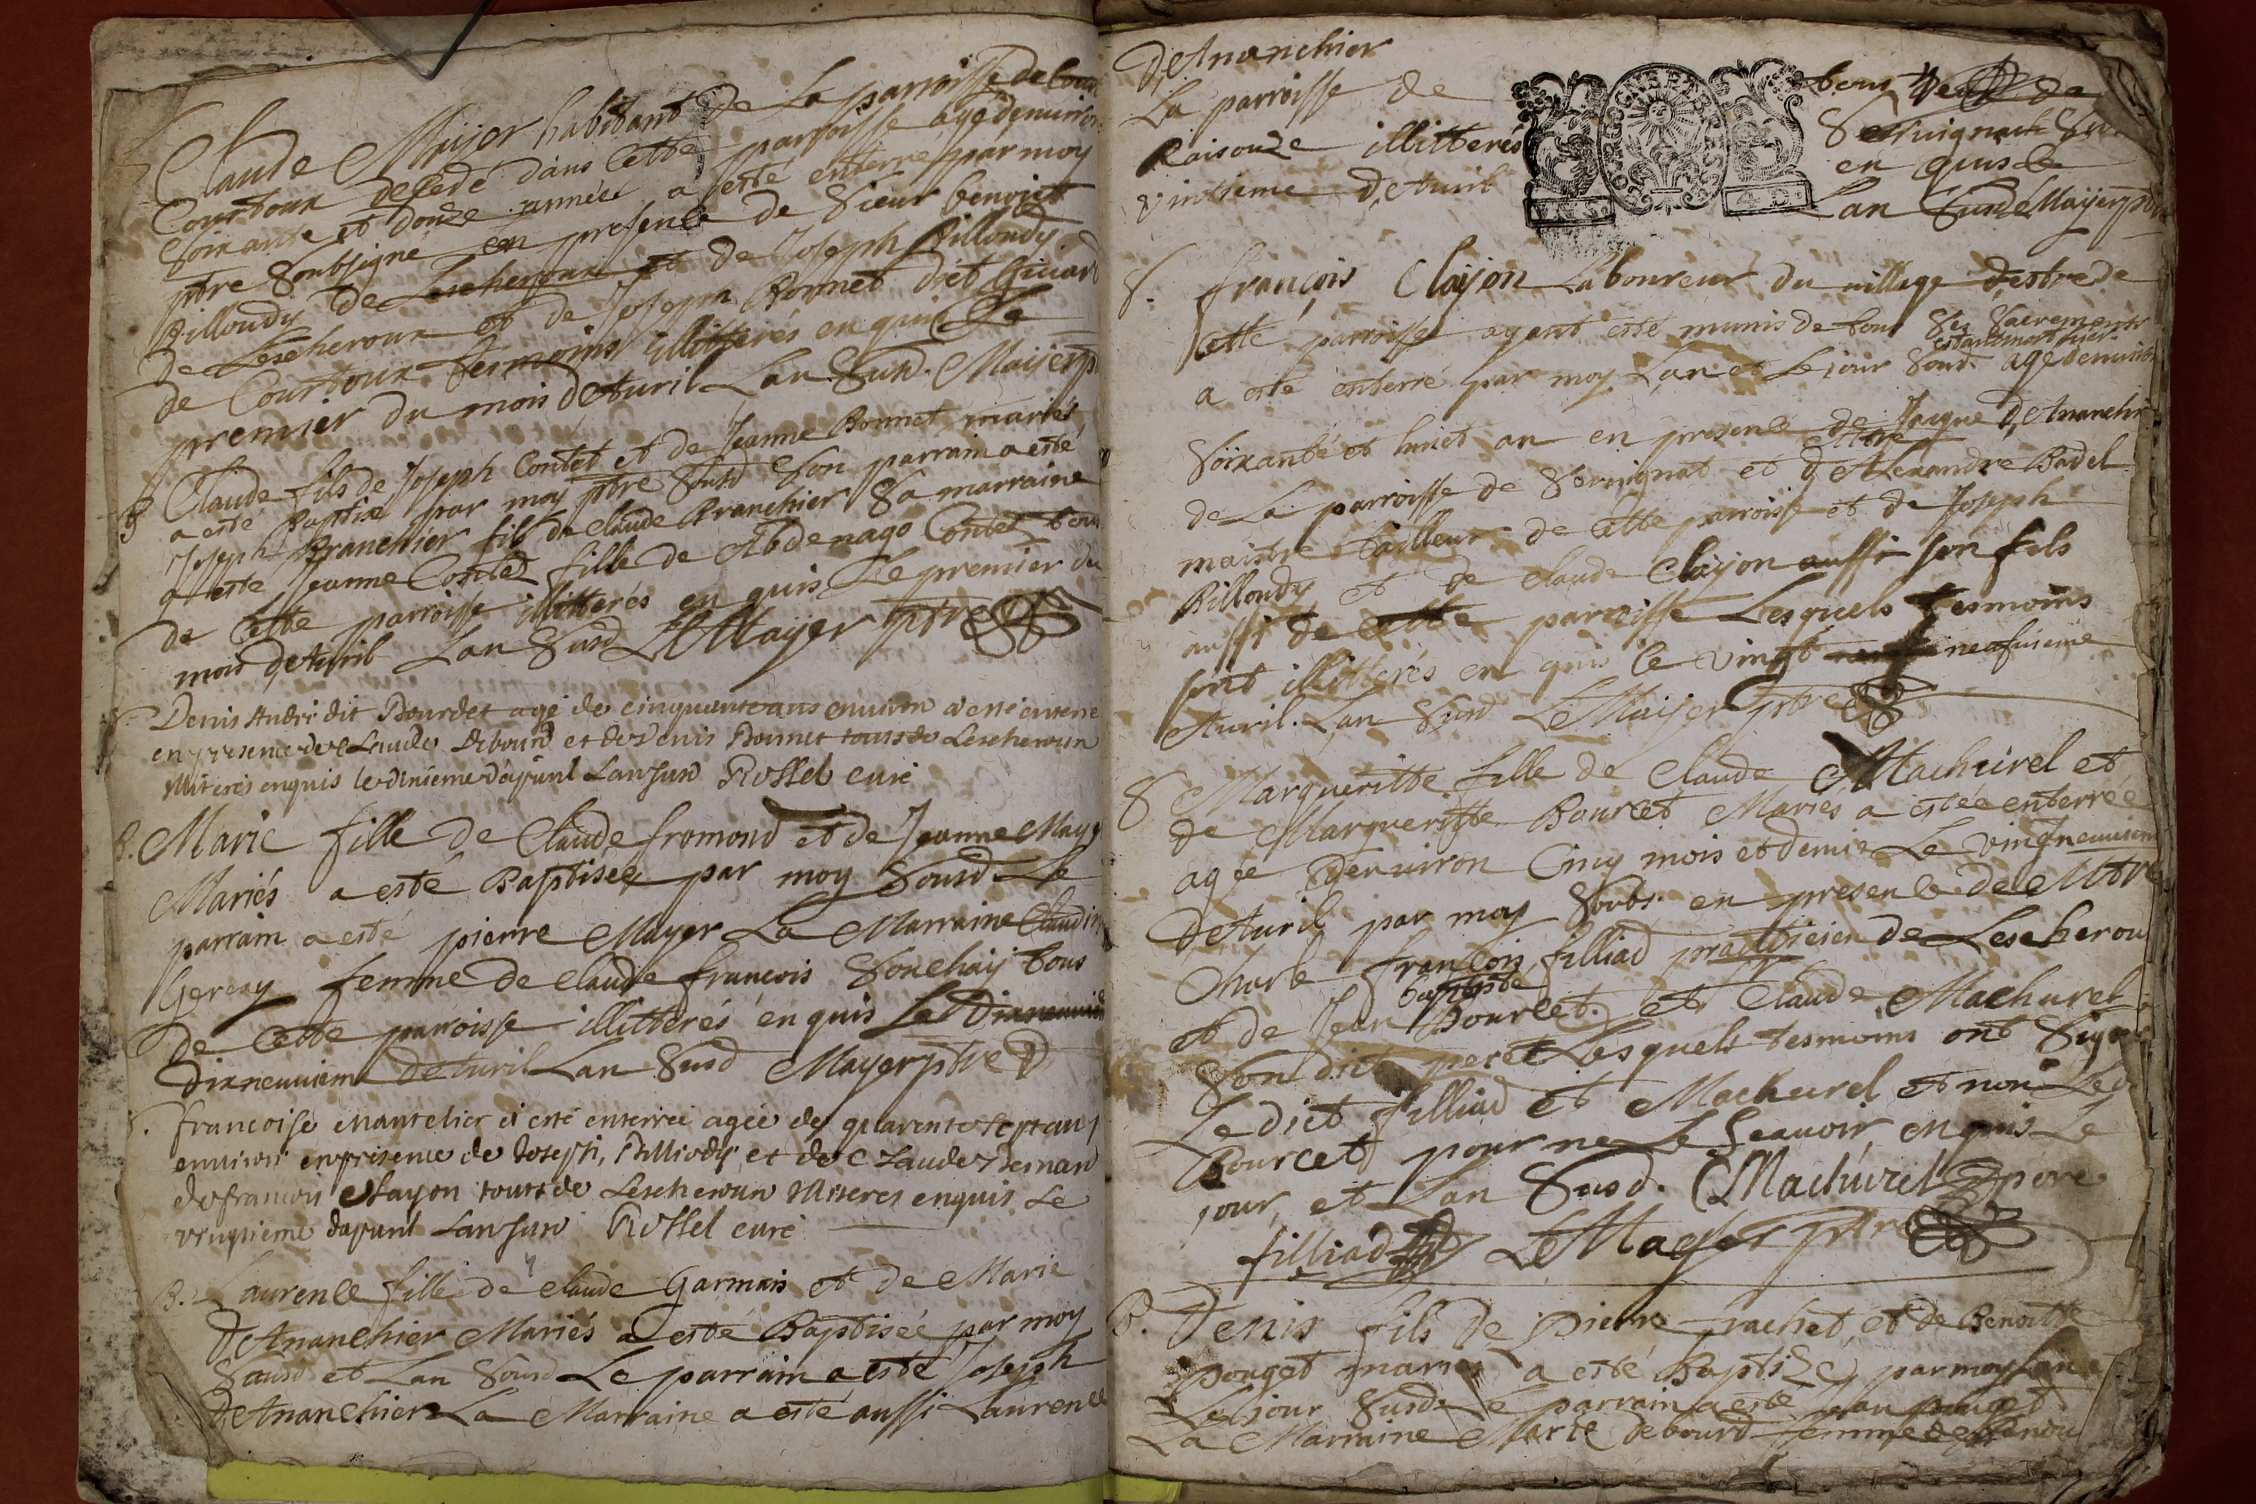 Claude Maijer habitant de La parroisse de Cour
Courtoux decedé dans Cette parroisse agé denviron
Soixante et douze année a esté enterré par moy
ptre Soubsigné en presence de Sieur benoist
Billoudy de Lescheroux et de Joseph Billoudy
de Lescheroux et de Joseph Bonnet dict Givard
de Courtoux tesmoins illitterés enquis Le
premier du mois d'Avril Lan Susd. Maijer p
B Claude fils de Joseph Contet et de Jeanne Bonnet mariés
a esté Baptisé par moy ptre Sousd Son parrain a esté
Joseph Branchier fils de Claude Branchier Sa marraine
a esté Jeanne Contet fille de Abdenago Contet tous
de Cette parroisse illitterés enquis Le premier du
mois d'Avril Lan Susd L Maijer ptre
S. Denis André dit Bourdet agé de cinquante ans environ a esté enterré
en presence de Claude Debourd et de Denis Bonnet tous de Lescheroux
illiterés enquis le dixieme d'apvril Lan susd Rossel curé
B. Marie fille de Claude fromond et de Jeanne Maye
Mariés a esté Baptisée par moy Sousd Le
parrain a esté pierre Mayer La Marraine Claudin
Geray femme de Claude françois Souchay tous
de Cette parroisse illitterés enquis Le
dixneuviem d'Avril Lan Susd Mayer ptre
S. francoise mantelier a esté enterrée agée de quarente sept ans
environ en presence de Joseph Billiody et de Claude Bernard
de francois Clayon touts de Lescheroux illiteres enquis Le
vingtieme dapvril Lan susd Rossel curé
B. Laurence fille de Claude Garmais et de Marie
d'Ananchier Mariés a esté Baptisée par moy
Sousd et Lan Sousd Le parrain a esté Joseph
d'Ananchier La Marraine a esté aussi Laurence
d'Ananchier tous deux de
La parroisse de Servignat Sur
Raisouze illitterés enquis le
vintieme d'Avril Lan Susd L Maijer ptre
S. françois Clayon Laboureur du village destre de
Cette parroisse ayant esté munis de tous Ses Sacrements
estant mort hier
a esté enterré par moy Lan et Le jour Sousd agé denviron
Soixante et huict an en presence de Jacque d'Ananchi
de La parroisse de Servignat et d'Alexandre Badel
maistre tailleur de Cette parroisse et de Joseph
Billoudy et de Claude Clayon aussi son fils
aussi de Cette parroisse Lesquels tesmoins
sont illitterés enquis le vingt neufvieme
Avril. Lan Susd L Maijer ptre
S Margueritte fille de Claude Machurel et
de Margueritte Bourcet Mariés a estée enterrée
agée denviron Cinq mois et demie Le vingtneuviem
d'Avril par moy Soubs. en presence de Mtre
Charle françois filliad practicien de Lescherou
et de Jean baptiste Bourcet. et Claude Machurel
Son dict pere Lesquels tesmoins ont Signé
Le dict filliad et Machurel et non Le
Bourcet pour ne Le Scavoir enquis Le
jour, et Lan Susd. C Machurel pere
filliad L Mayer ptre
B. Denis fils de Pierre rachet, et de Benoitte
pouget mariés a esté Baptizé par moy Lan
Le jour Susd Le parrain a esté jean pouget
La Marraine Marie debourd femme de